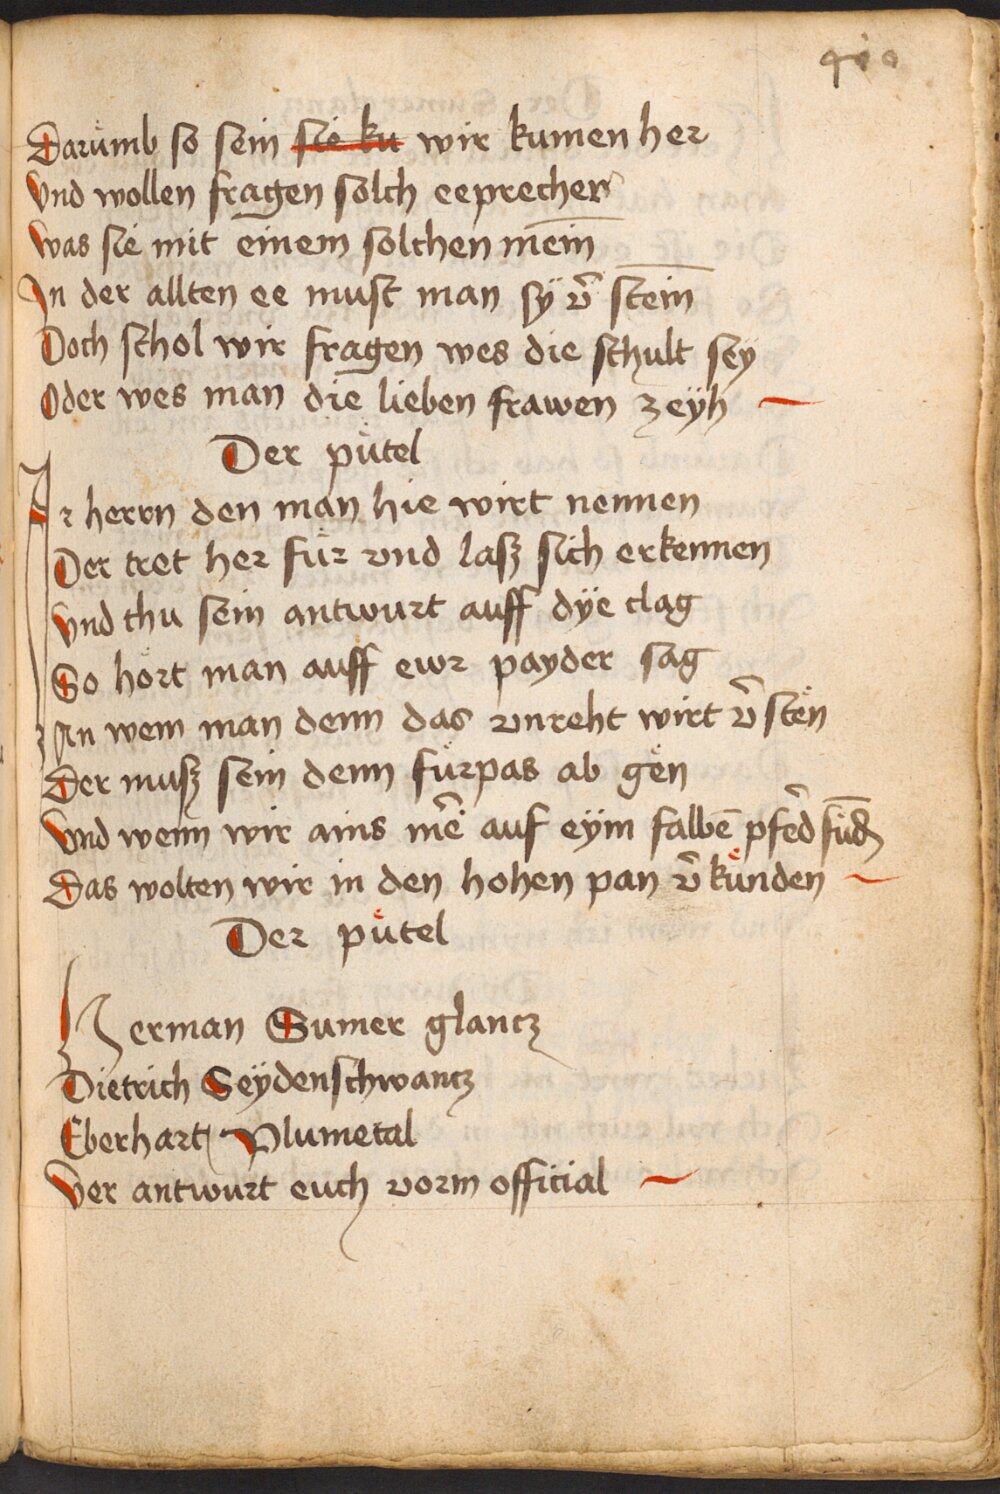 Darůmb so sein sie ku wir kumen her
Vnd wollen fragen solch eeprecher
Was sie mit einem solchen mein
In der allten ee must man sÿ v̄ stein
Doch schol wir fragen wes die schult sey
Oder wes man die lieben frawen zeÿh
Der půtel
Ir herrn den man hie wirt nennen
Der tret her fůr vnd lasz sich erkennen
Vnd thu sein antwurt auff dÿe clag
So hört man auff ewr payder sag
An wem man denn das vnreht wirt v̄ sten
Der musz sein denn fůrpas ab gen
Vnd wenn wir ains mē auf eÿm falbē pfed fūdn
Das wolten wir in den hohen pan v̄ kůnden
Der půtel
Herman Sumer glancz
Dietrich Seÿdenschwancz
Eberhart Plumetal
Ver antwurt euch vorm official